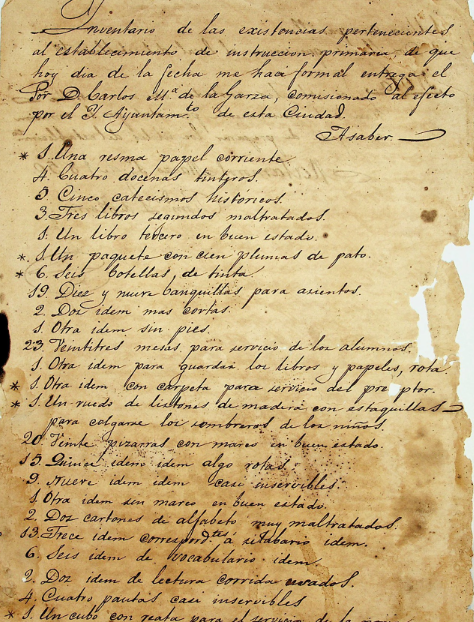 Inventario de las existencias pertenecientes
al establecimiento de instruccion primaria, de que
hoy dia de la fecha me hace formal entrega el
Sor. D. Carlos Ma. de la Garza, comisionado al efecto
por el I. Ayuntam.to de esta Ciudad.
Asaber
* 1. Una resma papel corriente.
4. Cuatro docenas tinteros.
5. Cinco catecismos historicos.
3. Tres libros segundos maltratados.
1. Un libro tercero en buen estado.
* 1. Un paquete con cien plumas de pato.
* 6. Seis botellas, de tinta.
19. Diez y nueve banquillas para asientos.
2. Dos idem mas cortas.
1. Otra idem sin pies.
23. Veintitres mesas para servicio de los alumnos.
1. Otra idem para guardar los libros y papeles, rota.
* 1. Otra idem con carpeta para servicio del preceptor.
* 1. Un ruedo de listones de madera con estaquillas
para colgarse los sombreros de los niños.
20. Veinte pizarras con marco en buen estado.
15. Quince idem idem algo rotas.
9. Nueve idem idem casi inservibles.
1. Otra idem sin marco en buen estado.
2. Dos cartones de alfabeto muy maltratados.
13. Trece idem correspond.tes á silabario idem.
6. Seis idem de vocabulario idem.
2. Dos idem de lectura corrida usados.
4. Cuatro pautas casi inservibles
* 1. Un cubo con reata para el servicio de la